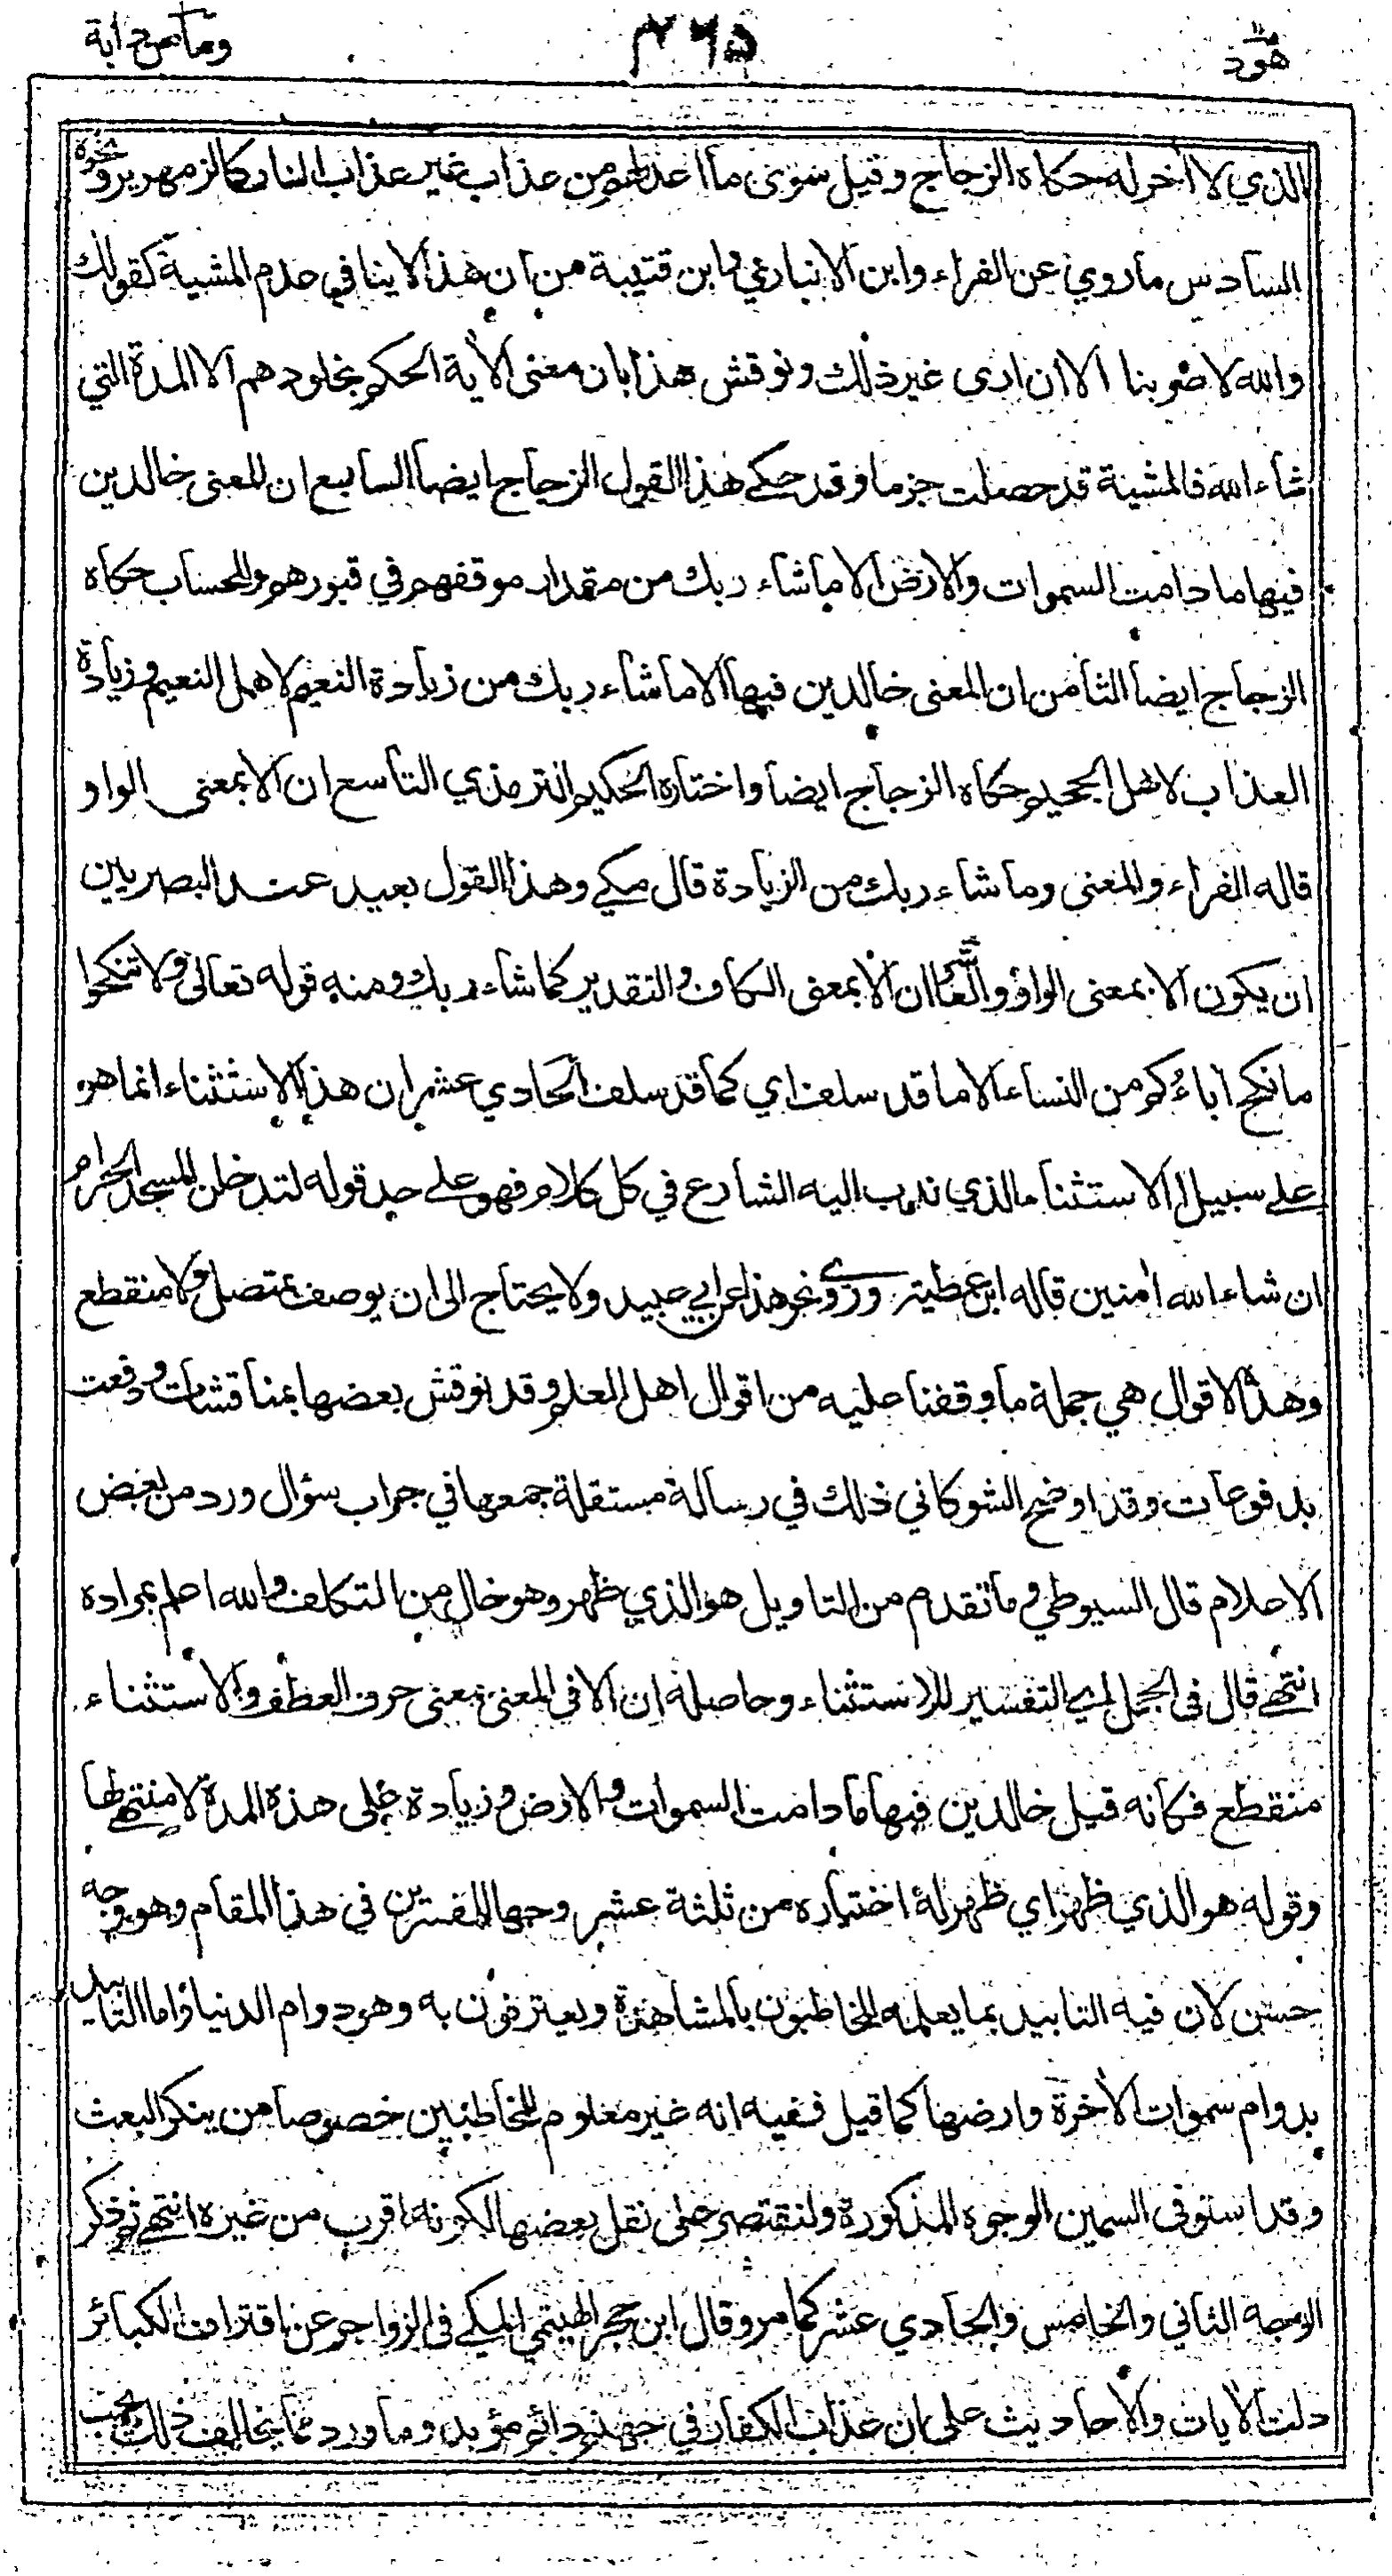 هود ٤٦٥ وما من دابة
الذي لا اخر له حكاه الزجاج وقيل سوى ما اعد لهم من عذاب غير عذاب النار كالزمهرير ونحوه
السادس ماروي عن الفراء وابن الانباري وابن قتيبة من ان هذا لا ينافي عدم المشية كقولك
والله لاضربنا الا ان ارى غير ذلك ونوقش هذا بان معنى الآية الحكم بخلودهم الا المدة التي
شاء الله فالمشية قد حصلت جزما وقد حكى هذا القول الزجاج ايضا السابع ان المعنى خالدين
فيها ما دامت السموات والارض الا ما شاء ربك من مقدار موقفهم في قبورهم وللحساب حكاه
الزجاج ايضا الثامن ان المعنى خالدين فيها الا ما شاء ربك من زيادة النعيم لاهل النعيم وزيادة
العذاب لاهل الجحيم حكاه الزجاج ايضا واختاره الحكيم الترمذي التاسع ان الا بمعنى الواو
قاله الفراء والمعنى وما شاء ربك من الزيادة قال مكي وهذا القول بعيد عند البصريين
ان يكون الا بمعنى الواو والعاشر ان الا بمعنى الكاف والتقدير كما شاء ربك ومنه قوله تعالى ولا تنكحوا
ما نكح اباءكم من النساء الا ما قد سلف اي كما قد سلف الحادي عشر ان هذا الاستثناء انما هو
على سبيل الاستثناء الذي ندب اليه الشارع في كل كلام فهو على حد قوله لتدخلن المسجد الحرام
ان شاء الله امنين قاله ابن عطية وروي نحو هذا عن ابي عبيد ولا يحتاج الى ان يوصف بمتصل ولا منقطع
وهذه الاقوال هي جملة ما وقفنا عليه من اقوال اهل العلم وقد نوقش بعضها بمناقشات ودفعت
بدفوعات وقد اوضح الشوكاني ذلك في رسالة مستقلة جمعها في جواب سؤال ورد من بعض
الاعلام قال السيوطي وما تقدم من التاويل هو الذي ظهر وهو خال من التكلف والله اعلم بمراده
انتهى قال في الجمل اي التفسير للاستثناء وحاصله ان الا في المعنى بمعنى حرف العطف والاستثناء
منقطع فكانه قيل خالدين فيها ما دامت السموات والارض وزيادة على هذه المدة لا منتهى لها
وقوله هو الذي ظهر اي ظهر له اختياره من ثلثة عشر وجها للمفسرين في هذا المقام وهو وجه
حسن لان فيه التابيد بما يعلمه المخاطبون بالمشاهدة ويعترفون به وهو دوام الدنيا واما التابيد
بدوام سموات الآخرة وارضها كما قيل ففيه انه غير معلوم للمخاطبين خصوصا من ينكر البعث
وقد استوفى السمين الوجوه المذكورة ولنقتصر على نقل بعضها لكونه اقرب من غيره انتهى ثم ذكر
الوجه الثاني والخامس والحادي عشر كما مر وقال ابن حجر الهيتمي المكي في الزواجر عن اقتراف الكبائر
دلت الآيات والاحاديث على ان عذاب الكفار في جهنم دائم مؤبد وما ورد مما يخالف ذلك يجب